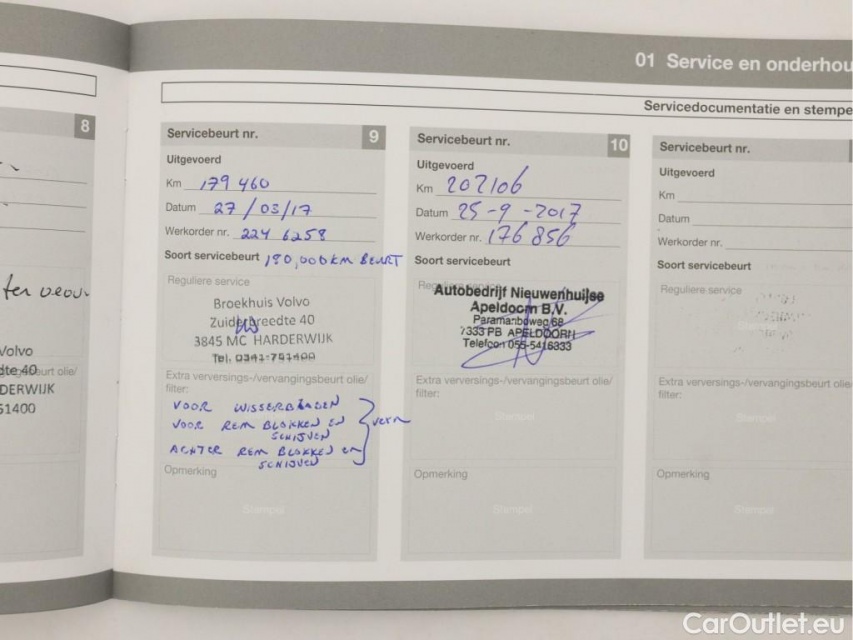 01 Service en onderhou
Servicedocumentatie en stempe
8
Volvo
dte 40
beurt olie/
DERWIJK
51400
Servicebeurt nr. 9
Uitgevoerd
Km 179 460
Datum 27/03/17
Werkorder nr. 224 6258
Soort servicebeurt 180,000 KM BEURT
Reguliere service
Broekhuis Volvo
Zuiderbreedte 40
3845 MC HARDERWIJK
Tel. 0341-751400
Extra verversings-/vervangingsbeurt olie/
filter:
VOOR WISSERBLADEN
VOOR REM BLOKKEN EN
SCHIJVEN
vern
ACHTER REM BLOKKEN en
SCHIJVEN
Opmerking
Stempel
Servicebeurt nr. 10
Uitgevoerd
Km 202106
Datum 25-9-2017
Werkorder nr. 176 856
Soort servicebeurt
Autobedrijf Nieuwenhuijse
Apeldoorn B.V.
Paramariboweg 68
7333 PB APELDOORN
Telefoon 055-5416333
Extra verversings-/vervangingsbeurt olie/
filter:
Stempel
Opmerking
Stempel
Servicebeurt nr.
Uitgevoerd
Km
Datum
Werkorder nr.
Soort servicebeurt
Reguliere service
Extra verversings-/vervangingsbeurt olie
filter:
Stempel
Opmerking
Stempel
CarOutlet.eu